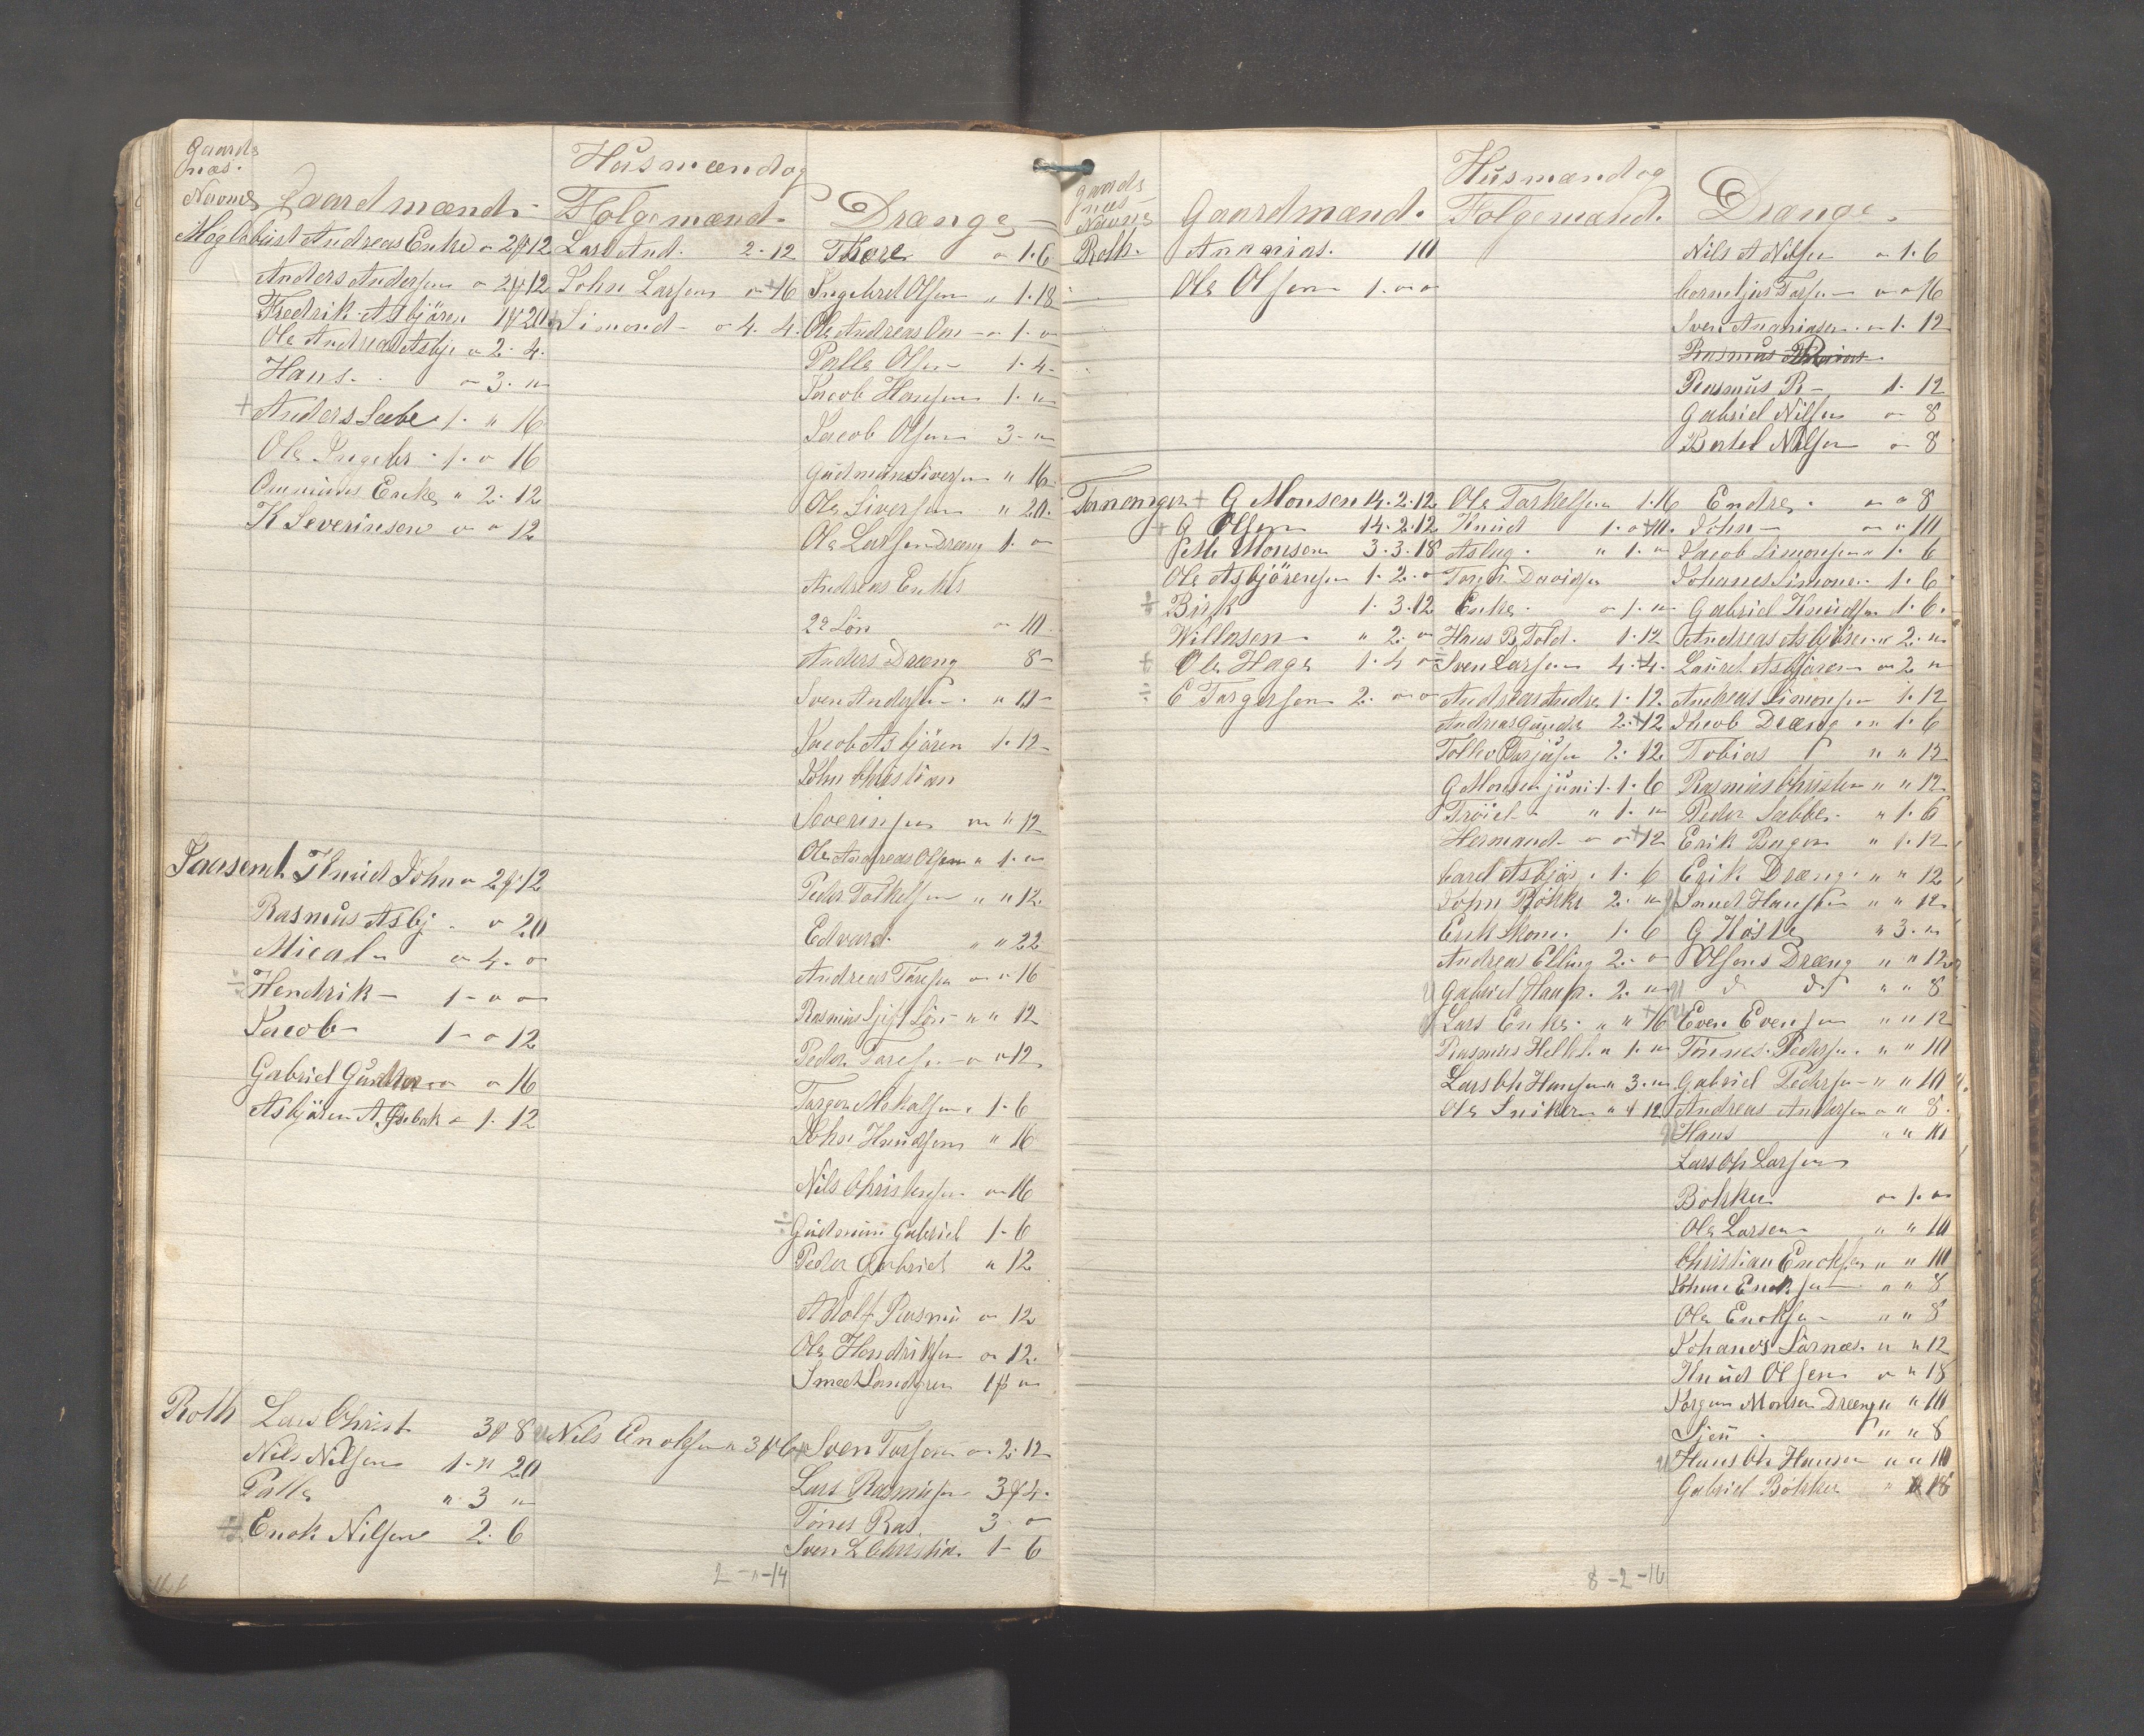 Gaards
nes.
Navne Gaardmænd.
Husmænd og
Folgemænd. Drænge
Andreas Enke " 2 12 Lars And. 2. 12 Thore " 1. 6
Anders Andersen " 2 12 John Larsen " 16 Ingebret Olsen " 1. 18
Fredrik Asbjören 1 20 Simond " 4. 4. Ole Andreas " 1. "
Ole Andreas Asbj " 2. 4. Palle Olsen 1. 4
Hans " 3. " Jacob Hansen 1. "
Anders Sæbe 1. " 16 Jacob Olsen 3. "
Ole Ingebr 1. " 16 Gudmun Siversen " 16
Enke " 2. 12 Ole Siversen " 20.
K Severinsen " " 12 Ole Larsen Dræng 1. "
Andreas Enkes
2 Sön " 10
Anders Dræng 8
Sven Andersen " 10
Jacob Asbjören 1. 12
John Christian
Severinsen " " 12
Ole Andreas Olsen " 1. "
Knud John " 2 12 Peder Torkelsen " " 12
Rasmus Asbj. " 20 Edvard " " 22
Mical " 4. " Andreas Töresen " " 16
Hendrik 1 " " Rasmus Sön " " 12
Jacob 1 " 12 Peder " " 12
Gabriel " " 16 Torger 1. 6
Asbjören A " 1. 12 John Knudsen " 16
Nils Christensen " 16
Gudmun Gabriel 1 6
Peder Gabriel " 12
Adolf Rasmu " 12
Ole Hendriksen " 12.
Smed Sandgren 1 "
Roth Lars Christ 3 8 Nils Enoksen " 3 6 Sven Torsen " 2. 12
Nils Nilsen 1 " 20 Lars Rasmusen 3 4.
Palle " 3 " Tönes Ras. 3 "
Enok Nilsen 2. 6 Sven L Christia. 1 6
2 " 14
Gaards
nes
Navne Gaardmænd.
Husmænd og
Folgemænd. Drænge.
Roth. Ananias. 10 Nils A Nilsen " 1. 6
Ole Olsen 1. " " Corneljus Torsen " " 16
Sven Ananiasen " 1. 12
Rasmus
Rasmus R 1. 12
Gabriel Nilsen " 8
Bertel Nilsen " 8
Tananger G Monsen 14. 2. 12 Ole Torkelsen 1. 16 Endre " " 8
G Olsen 14. 2. 12 Knud 1. " 10. John " " 10
Pette Monsen 3. 3. 18 Aslag. " 1. " Jacob Simonsen " 1. 6
Ole Asbjörensen 1. 2. " Davidsen Johanes Simone 1. 6
Birk 1. 3. 12 Enke " 1. " Gabriel Knudsen 1. 6.
Willasen " 2. " Hans B Told. 1. 12 Andreas Asbjören " 2. "
Ole Haga 1. 4 " Sven Larsen 4. 4. Laurel Asbjören " 2 "
E Torgersen 2. " " Andreas Andre 1. 12. Andreas Simonsen 1. 12
Andreas Gunder 2. 12 Jacob Dræng " " 1. 6
Tollev 2. 12 Tobias " " 12
G Monsen juni 1. 1. 6 Rasmus Christen " " 12
" 1. " Peder Sæbbe " 1. 6
Hermand " " 12 Erik Berger " 1. 12
Carel Asbjör. 1. 6 Erik Dræng " " 12
John Bökke 2. " Hansen " " 12
Erik Skom. 1. 6 G Höste " 3. "
Andreas Elling 2. " Olsens Dræng " " 12
Gabriel Hansen. 2. " d d " " 8
Lars Enke " " 16 Even Evensen " " 12
Rasmus " 1. " Tönnes Pedersen " " 10
Lars Ch Hansen " 3. " Gabriel Pedersen " " 10
Ole Sniker " 4 12 Andreas Andersen " " 8
Hans " " 10
Lars Ch Larsen
Bökker " 1. "
Ole Larsen " " 10
Christian Enoksen " " 10
Johan Enoksen " " 8
Ole Enoksen " " 8
Johanes " " 12
Knud Olsen " " 18
Jörgen Monsen Dræng " " 10
" " 8
Hans Ch Hansen " " 10
Gabriel Bökker " 18
8 - 2 - 16